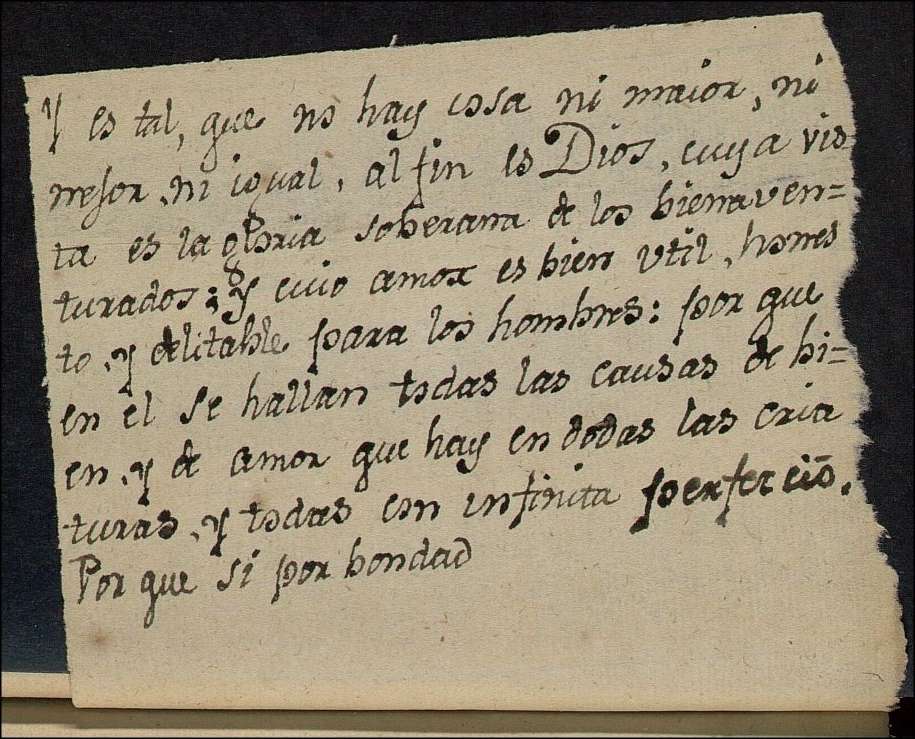 Y es tal, que no hay cosa ni maior, ni
mejor, ni igual, al fin es Dios, cuya vis
ta es la gloria soberana de los bienaven=
turados; y cuio amor es bien util, hones
to, y delitable para los hombres: por que
en el se hallan todas las causas de bi=
en, y de amor que hay en dodas las cria
turas, y todas con infinita perfecciō.
Por que si por bondad